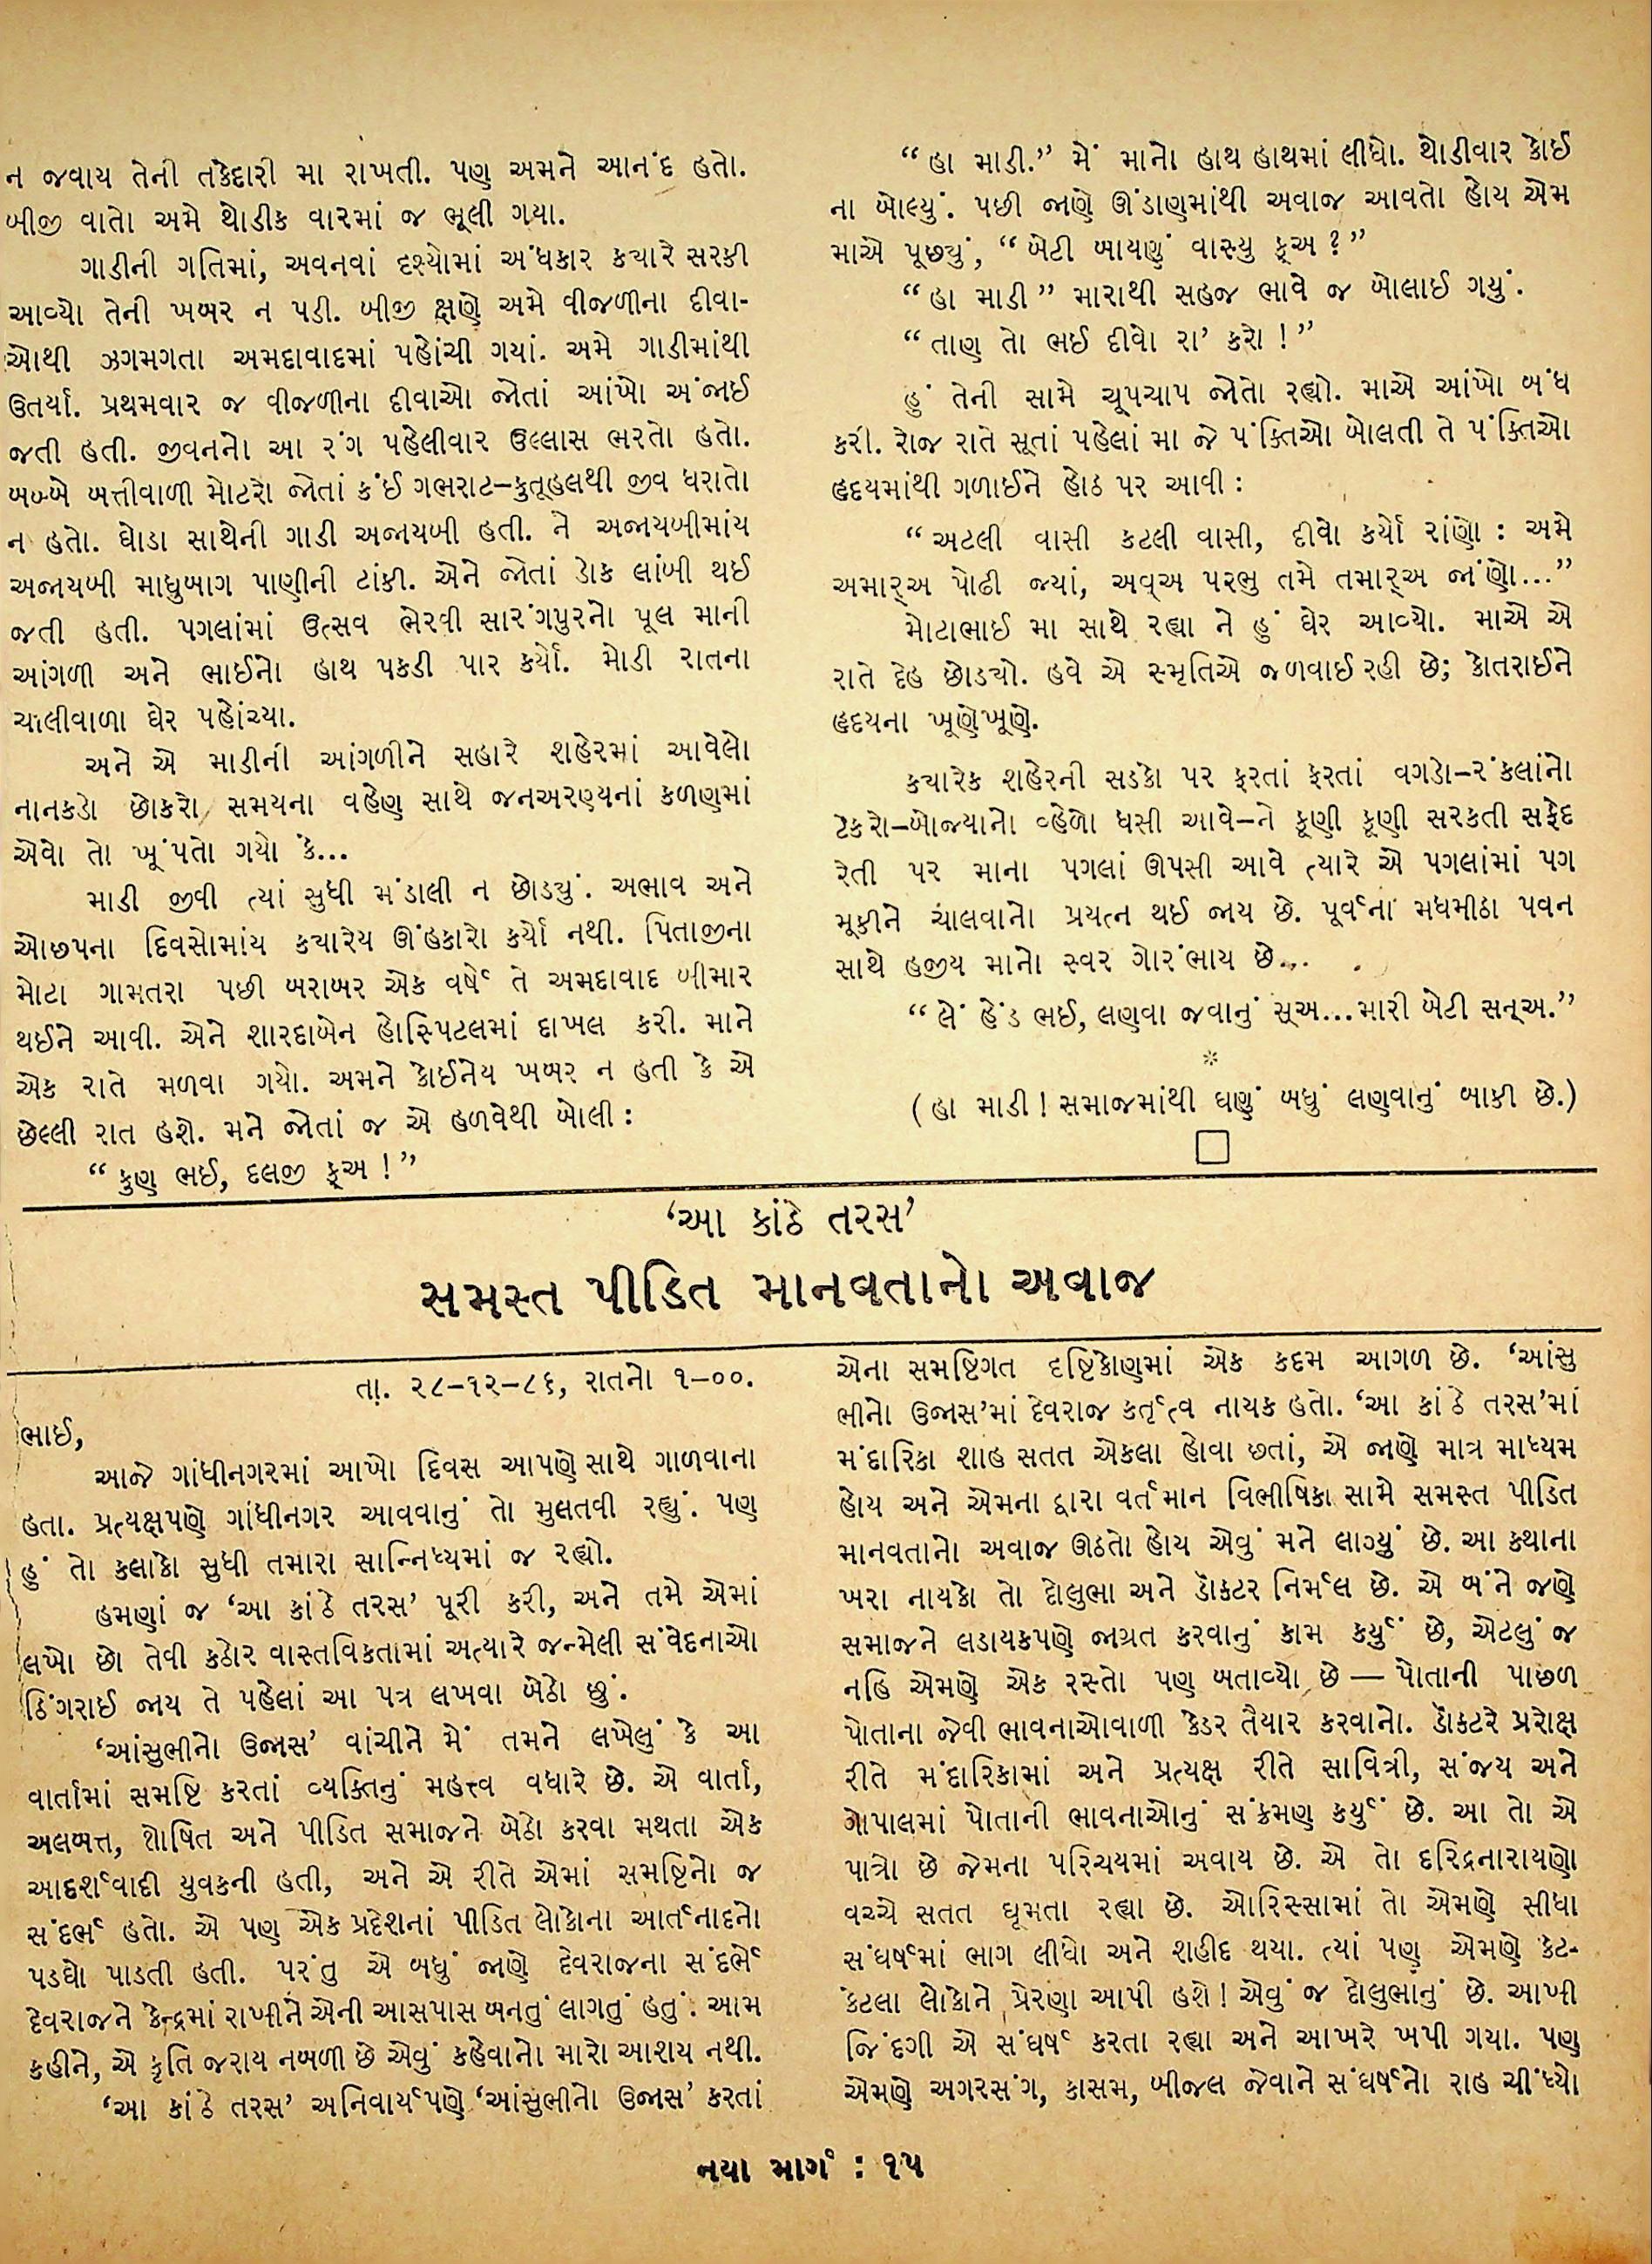 ન જવાય તેની તકેદારી મા રાખતી. પણ અમને આનંદ હતો.
બીજી વાતો અમે થોડીક વારમાં જ ભૂલી ગયા.
ગાડીની ગતિમાં, અવનવાં દૃશ્યોમાં અંધકાર ક્યારે સરકી
આવ્યો તેની ખબર ન પડી. બીજી ક્ષણે અમે વીજળીના દીવા-
ઓથી ઝગમગતા અમદાવાદમાં પહોંચી ગયાં. અમે ગાડીમાંથી
ઉતર્યા. પ્રથમવાર જ વીજળીના દીવાઓ જોતાં આંખો અંજાઈ
જતી હતી. જીવનનો આ રંગ પહેલીવાર ઉલ્લાસ ભરતો હતો.
બબ્બે બત્તીવાળી મોટરો જોતાં કંઈ ગભરાટ–કુતૂહલથી જીવ ધરાતો
ન હતો. ઘોડા સાથેની ગાડી અજાયબી હતી. ને અજાયબીમાંય
અજાયબી માધુબાગ પાણીની ટાંકી. એને જોતાં ડોક લાંબી થઈ
જતી હતી. પગલાંમાં ઉત્સવ ભેરવી સારંગપુરનો પૂલ માની
આંગળી અને ભાઈનો હાથ પકડી પાર કર્યો. મોડી રાતના
ચાલીવાળા ઘેર પહોંચ્યા.
અને એ માડીની આંગળીને સહારે શહેરમાં આવેલો
નાનકડો છોકરો સમયના વહેણ સાથે જનઅરણ્યનાં કળણમાં
એવો તો ખૂંપતો ગયો કે...
માડી જીવી ત્યાં સુધી મંડાલી ન છોડ્યું. અભાવ અને
ઓછપના દિવસોમાંય ક્યારેય ઊંહકારો કર્યો નથી. પિતાજીના
મોટા ગામતરા પછી બરાબર એક વર્ષે તે અમદાવાદ બીમાર
થઈને આવી. એને શારદાબેન હોસ્પિટલમાં દાખલ કરી. માને
એક રાતે મળવા ગયો. અમને કોઈનેય ખબર ન હતી કે એ
છેલ્લી રાત હશે. મને જોતાં જ એ હળવેથી બોલી :
“કુણ ભઈ, દલજી ક્અ !”
“હા માડી.” મેં માનો હાથ હાથમાં લીધો. થોડીવાર કોઈ
ના બોલ્યું. પછી જાણે ઊંડાણમાંથી અવાજ આવતો હોય એમ
માએ પૂછ્યું, “બેટી બાયણું વાસ્યુ ક્અ ?”
“હા માડી” મારાથી સહજ ભાવે જ બોલાઈ ગયું.
“તાણ તો ભઈ દીવો રા’ કરો !”
હું તેની સામે ચૂપચાપ જોતો રહ્યો. માએ આંખો બંધ
કરી. રોજ રાતે સૂતાં પહેલાં મા જે પંક્તિઓ બોલતી તે પંક્તિઓ
હૃદયમાંથી ગળાઈને હોઠ પર આવી :
“અટલી વાસી કટલી વાસી, દીવો કર્યો રાંણો : અમે
અમાર્અ પોઢી જ્યાં, અવ્અ પરભુ તમે તમાર્અ જાંણો...”
મોટાભાઈ મા સાથે રહ્યા ને હું ઘેર આવ્યો. માએ એ
રાતે દેહ છોડ્યો. હવે એ સ્મૃતિએ જળવાઈ રહી છે; કોતરાઈને
હૃદયના ખૂણેખૂણે.
ક્યારેક શહેરની સડકો પર ફરતાં ફરતાં વગડો–રંકલાંનો
ટેકરો–બોજ્યાનો વ્હેળો ધસી આવે–ને કૂણી કૂણી સરકતી સફેદ
રેતી પર માના પગલાં ઊપસી આવે ત્યારે એ પગલાંમાં પગ
મૂકીને ચાલવાનો પ્રયત્ન થઈ જાય છે. પૂર્વના મધમીઠા પવન
સાથે હજીય માનો સ્વર ગોરંભાય છે...
“લેં હેંડ ભઈ, લણવા જવાનું સ્અ...મારી બેટી સન્અ.”
*
(હા માડી ! સમાજમાંથી ઘણું બધું લણવાનું બાકી છે.)
‘આ કાંઠે તરસ’
સમસ્ત પીડિત માનવતાનો અવાજ
તા. ૨૮–૧૨–૮૬, રાતનો ૧–૦૦.
ભાઈ,
આજે ગાંધીનગરમાં આખો દિવસ આપણે સાથે ગાળવાના
હતા. પ્રત્યક્ષપણે ગાંધીનગર આવવાનું તો મુલતવી રહ્યું. પણ
હું તો કલાકો સુધી તમારા સાન્નિધ્યમાં જ રહ્યો.
હમણાં જ ‘આ કાંઠે તરસ’ પૂરી કરી, અને તમે એમાં
લખો છો તેવી કઠોર વાસ્તવિકતામાં અત્યારે જન્મેલી સંવેદનાઓ
ઠિંગરાઈ જાય તે પહેલાં આ પત્ર લખવા બેઠો છું.
‘આંસુભીનો ઉજાસ’ વાંચીને મેં તમને લખેલું કે આ
વાર્તામાં સમષ્ટિ કરતાં વ્યક્તિનું મહત્ત્વ વધારે છે. એ વાર્તા,
અલબત્ત, શોષિત અને પીડિત સમાજને બેઠો કરવા મથતા એક
આદર્શવાદી યુવકની હતી, અને એ રીતે એમાં સમષ્ટિનો જ
સંદર્ભ હતો. એ પણ એક પ્રદેશનાં પીડિત લોકોના આર્તનાદનો
પડઘો પાડતી હતી. પરંતુ એ બધું જાણે દેવરાજના સંદર્ભે
દેવરાજને કેન્દ્રમાં રાખીને એની આસપાસ બનતું લાગતું હતું. આમ
કહીને, એ કૃતિ જરાય નબળી છે એવું કહેવાનો મારો આશય નથી.
‘આ કાંઠે તરસ’ અનિવાર્યપણે ‘આંસુભીનો ઉજાસ’ કરતાં
એના સમષ્ટિગત દૃષ્ટિકોણમાં એક કદમ આગળ છે. ‘આંસુ
ભીનો ઉજાસ’માં દેવરાજ કર્તૃત્વ નાયક હતો. ‘આ કાંઠે તરસ’માં
મંદારિકા શાહ સતત એકલા હોવા છતાં, એ જાણે માત્ર માધ્યમ
હોય અને એમના દ્વારા વર્તમાન વિભીષિકા સામે સમસ્ત પીડિત
માનવતાનો અવાજ ઊઠતો હોય એવું મને લાગ્યું છે. આ કથાના
ખરા નાયકો તો દોલુભા અને ડૉકટર નિર્મલ છે. એ બંને જણે
સમાજને લડાયકપણે જાગ્રત કરવાનું કામ કર્યું છે, એટલું જ
નહિ એમણે એક રસ્તો પણ બતાવ્યો છે — પોતાની પાછળ
પોતાના જેવી ભાવનાઓવાળી કેડર તૈયાર કરવાનો. ડૉકટરે પ્રરોક્ષ
રીતે મંદારિકામાં અને પ્રત્યક્ષ રીતે સાવિત્રી, સંજય અને
ગોપાલમાં પોતાની ભાવનાઓનું સંક્રમણ કર્યું છે. આ તો એ
પાત્રો છે જેમના પરિચયમાં અવાય છે. એ તો દરિદ્રનારાયણો
વચ્ચે સતત ઘૂમતા રહ્યા છે. ઓરિસ્સામાં તો એમણે સીધા
સંઘર્ષમાં ભાગ લીધો અને શહીદ થયા. ત્યાં પણ એમણે કેટ-
કેટલા લોકોને પ્રેરણા આપી હશે ! એવું જ દોલુભાનું છે. આખી
જિંદગી એ સંઘર્ષ કરતા રહ્યા અને આખરે ખપી ગયા. પણ
એમણે અગરસંગ, કાસમ, બીજલ જેવાને સંઘર્ષનો રાહ ચીંધ્યો
નયા માર્ગ : ૧૫